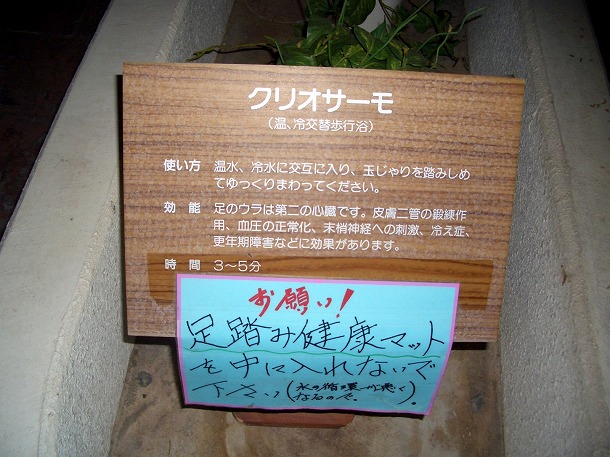 クリオサーモ
（温、冷交替歩行浴）
使い方　温水、冷水に交互に入り、玉じゃりを踏みしめ
てゆっくりまわってください。
効　能　足のウラは第二の心臓です。皮膚二管の鍛練作
用、血圧の正常化、末梢神経への刺激、冷え症、
更年期障害などに効果があります。
時　間　3〜5分
お願い！
足踏み健康マット
を中に入れないで
下さい（水の循環が悪く
なるので。）